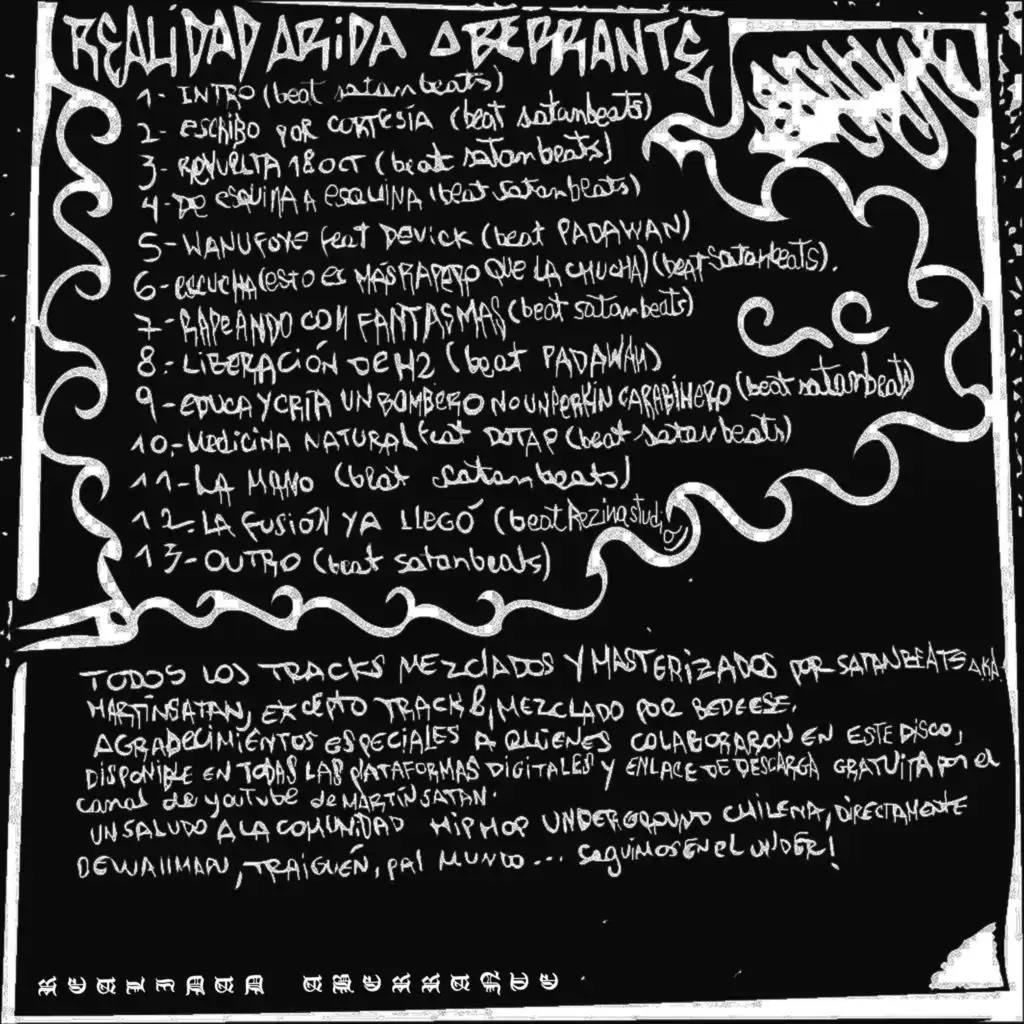 REALIDAD ARIDA ABERRANTE
1- INTRO (beat satanbeats)
2- ESCRIBO POR CORTESÍA (beat satanbeats)
3- REVUELTA 18 OCT (beat satanbeats)
4- DE ESQUINA A ESQUINA (beat satanbeats)
5- WANUFOYE feat DEVICK (beat PADAWAN)
6- ESCUCHA (ESTO ES MÁS RAPERO QUE LA CHUCHA) (beat satanbeats).
7- RAPEANDO CON FANTASMAS (beat satanbeats)
8- LIBERACIÓN DE H2 (beat PADAWAN)
9- EDUCA Y CRIA UN BOMBERO NO UN PERKIN CARABINERO (beat satanbeats)
10- MEDICINA NATURAL feat DOTAP (beat satanbeats)
11- LA MANO (beat satanbeats)
12- LA FUSIÓN YA LLEGÓ (beat Rezina studio)
13- OUTRO (beat satanbeats)
TODOS LOS TRACKS MEZCLADOS Y MASTERIZADOS POR SATANBEATS AKA
MARTINSATAN, EXCEPTO TRACK 8, MEZCLADO POR BEDEESE.
AGRADECIMIENTOS ESPECIALES A QUIENES COLABORARON EN ESTE DISCO,
DISPONIBLE EN TODAS LAS PLATAFORMAS DIGITALES Y ENLACE DE DESCARGA GRATUITA por el
canal de youTube de MARTÍNSATAN.
UN SALUDO A LA COMUNIDAD HIP HOP UNDERGROUND CHILENA, DIRECTAMENTE
DEWALLMAPU, TRAIGUÉN, PAL MUNDO... SEGUIMOS EN el UNDER!
REALIDAD ABERRANTE